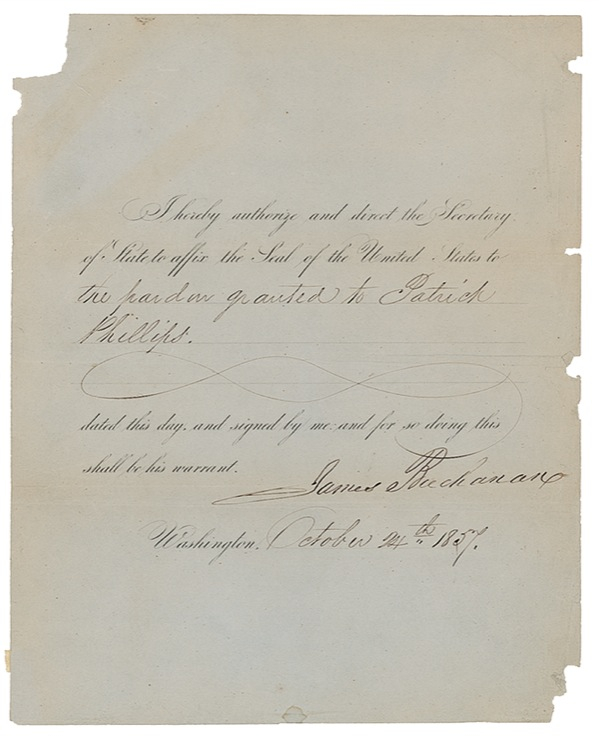 I hereby authorize and direct the Secretary
of State to affix the Seal of the United States to
the pardon granted to Patrick
Phillips.
dated this day, and signed by me: and for so doing this
shall be his warrant.
James Buchanan
Washington, October 24th 1857.